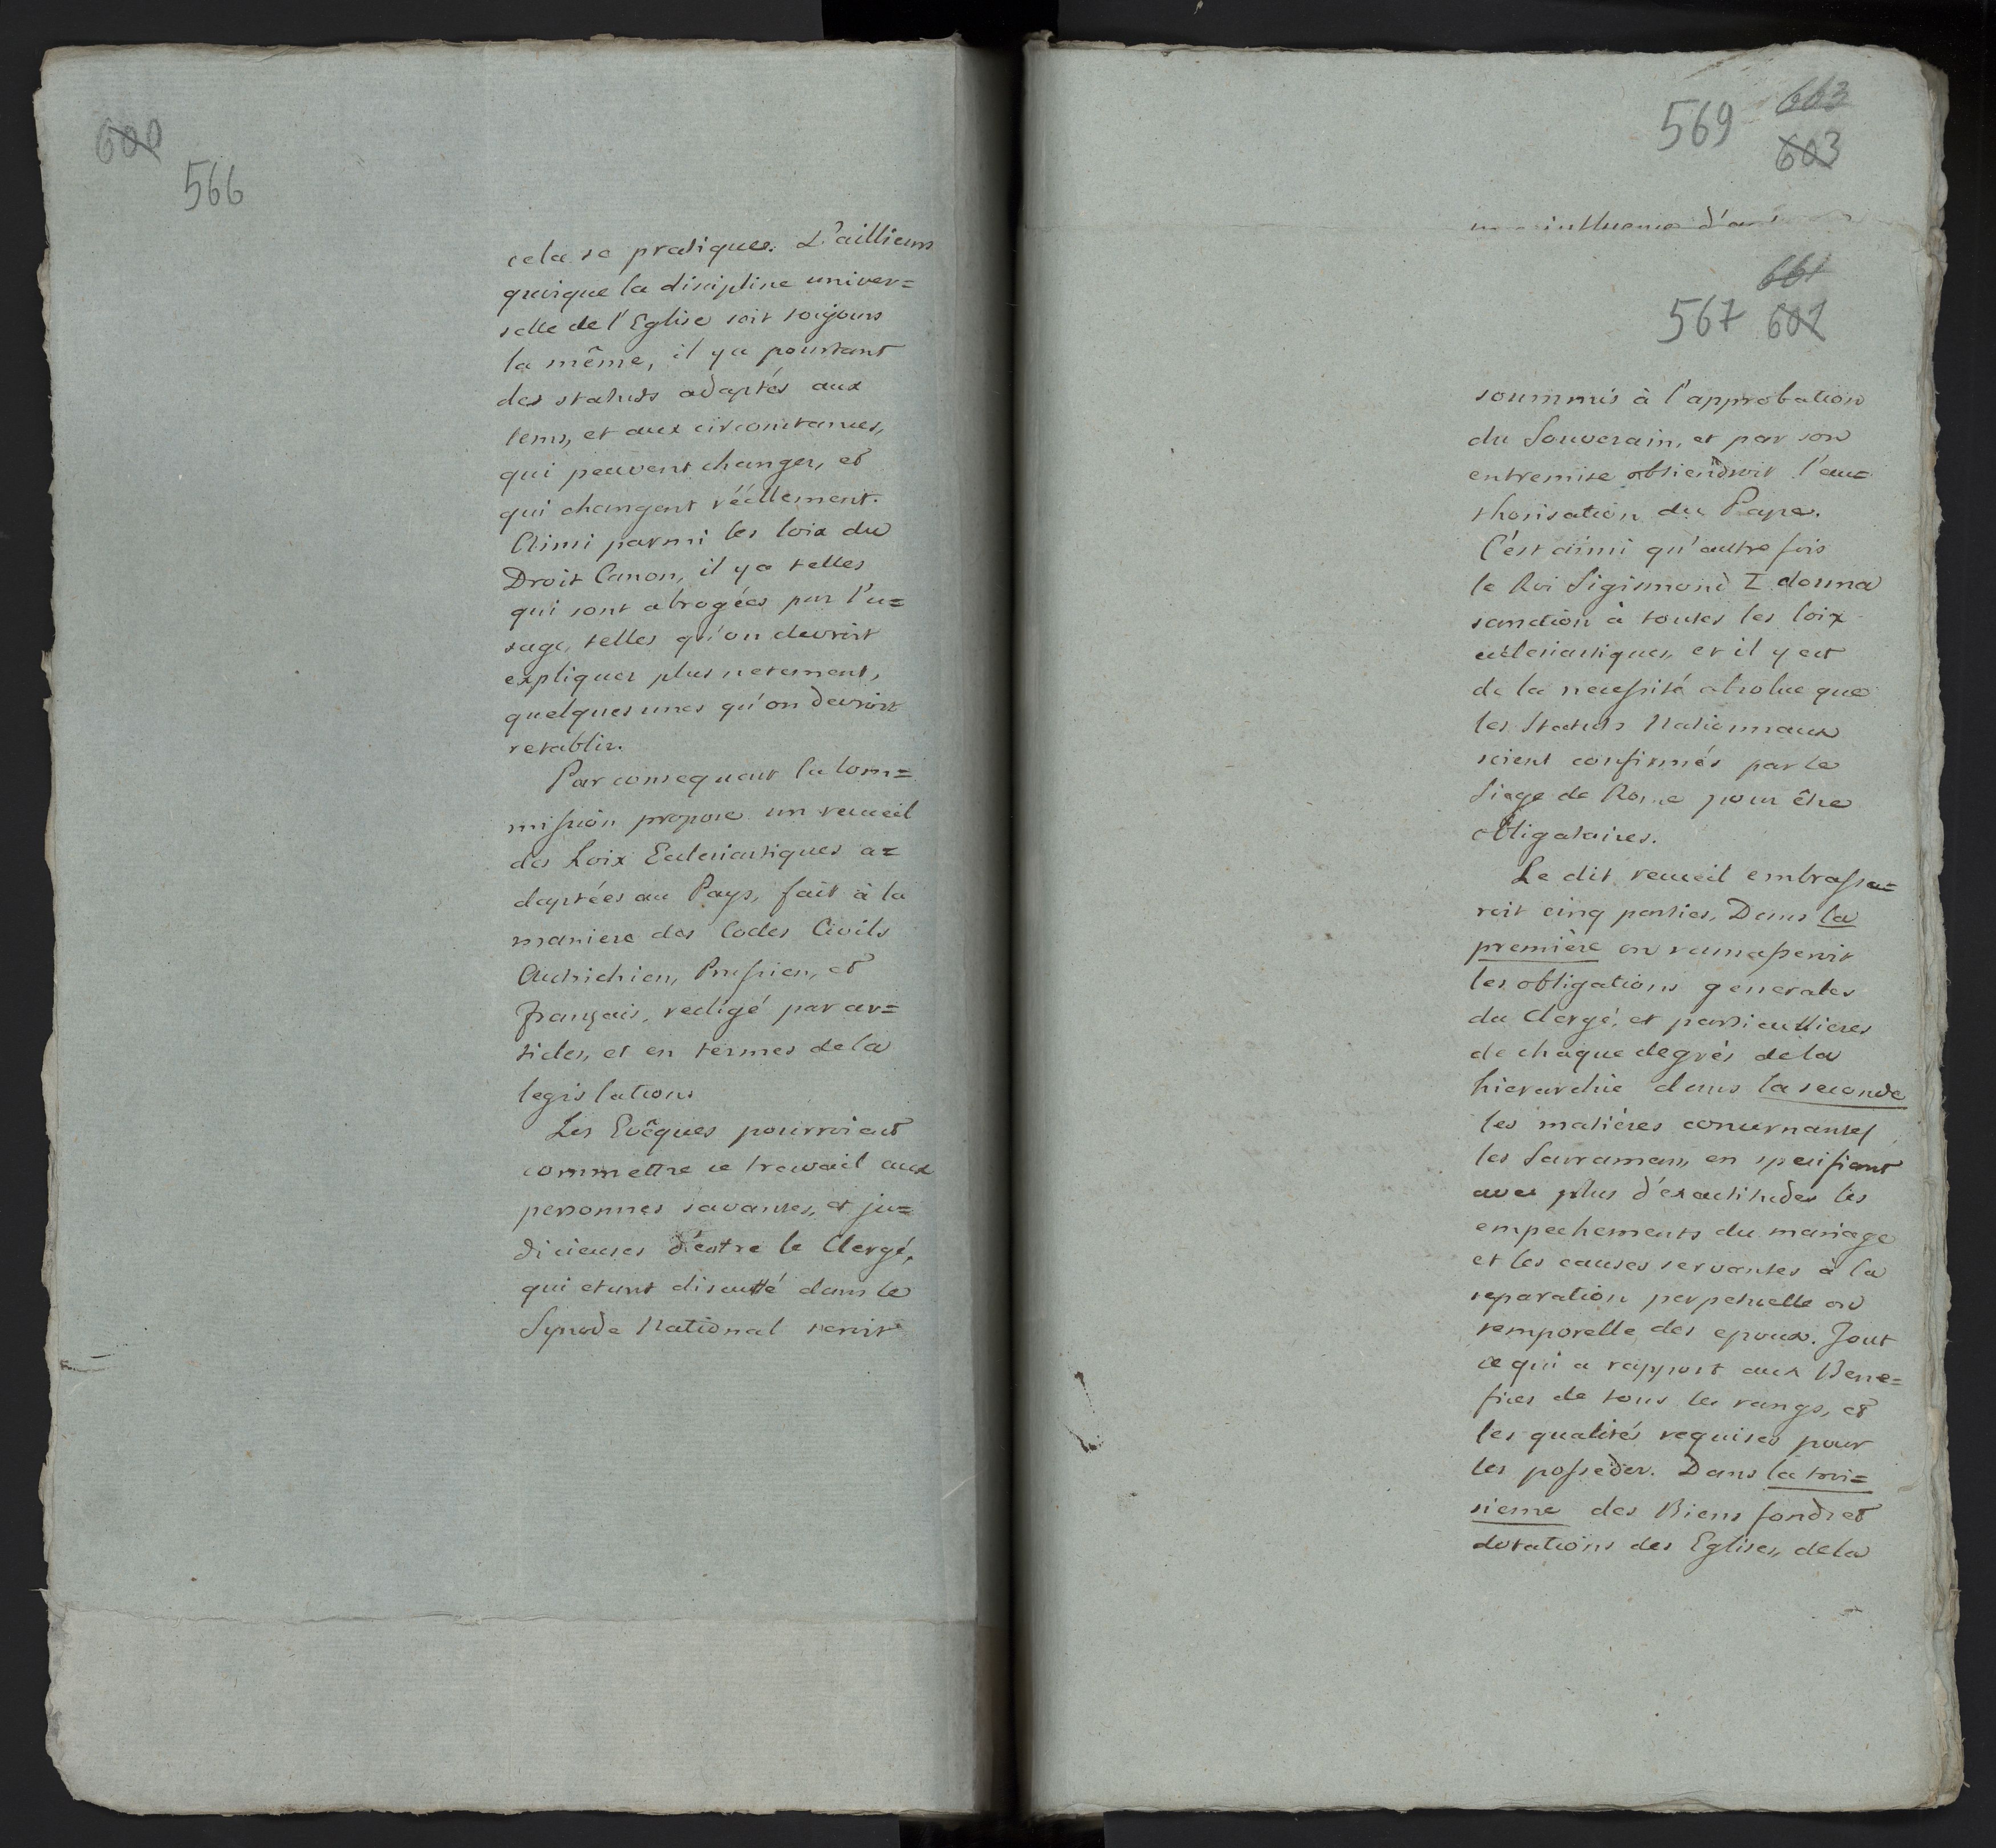 600
566
cela se pratique. D'aillieurs
quoique la discipline univer=
selle de l'Eglise soit toujours
la même, il y a pourtant
des statuts adaptés aux
tems, et aux circonstances,
qui peuvent changer, et
qui changent réellement.
Ainsi parmi les loix du
Droit Canon, il y a telles
qui sont abrogées par l'u=
sage, telles qu'on devroit
expliquer plus netement,
quelques unes qu'on devroit
retablir.
Par consequent la Com=
mission propose un recueil
des Loix Ecclesiastiques a=
daptées au Pays, fait à la
maniere des Codes Civils
Autrichien, Prussien, et
français, redigé par ar=
ticles, et en termes de la
legislation.
Les Evêques pourroient
commettre ce travail aux
personnes savantes, et ju=
dicieuses d'entre le Clergé,
qui etant discutté dans le
Synode National seroit
569 603
603
influence
661
567 601
soummis à l'approbation
du Souverain, et par son
entremise obtiendroit l'au=
thorisation du Pape.
C'est ainsi qu'autre fois
le Roi Sigismond I donna
sanction à toutes les loix
ecclesiastiques, et il y est
de la necessité absolue que
les Statuts Nationnaux
soient confirmés par le
Siege de Rome pour être
obligataires.
Le dit recueil embrasse=
roit cinq parties, Dans la
première on ramasseroit
les obligations generales
du Clergé, et particullieres
de chaque degrés de la
hierarchie dans la seconde
les matières concernantes
les Sacramens, en specifiant
avec plus d'exactitudes les
empechements du mariage
et les causes servantes à la
separation perpetuelle ou
temporelle des epoux. Tout
ce qui a rapport aux Bene=
fices de tous les rangs, et
les qualités requises pour
les posseder. Dans la troi=
sieme des Biens fonds et
dotations des Eglises, de la